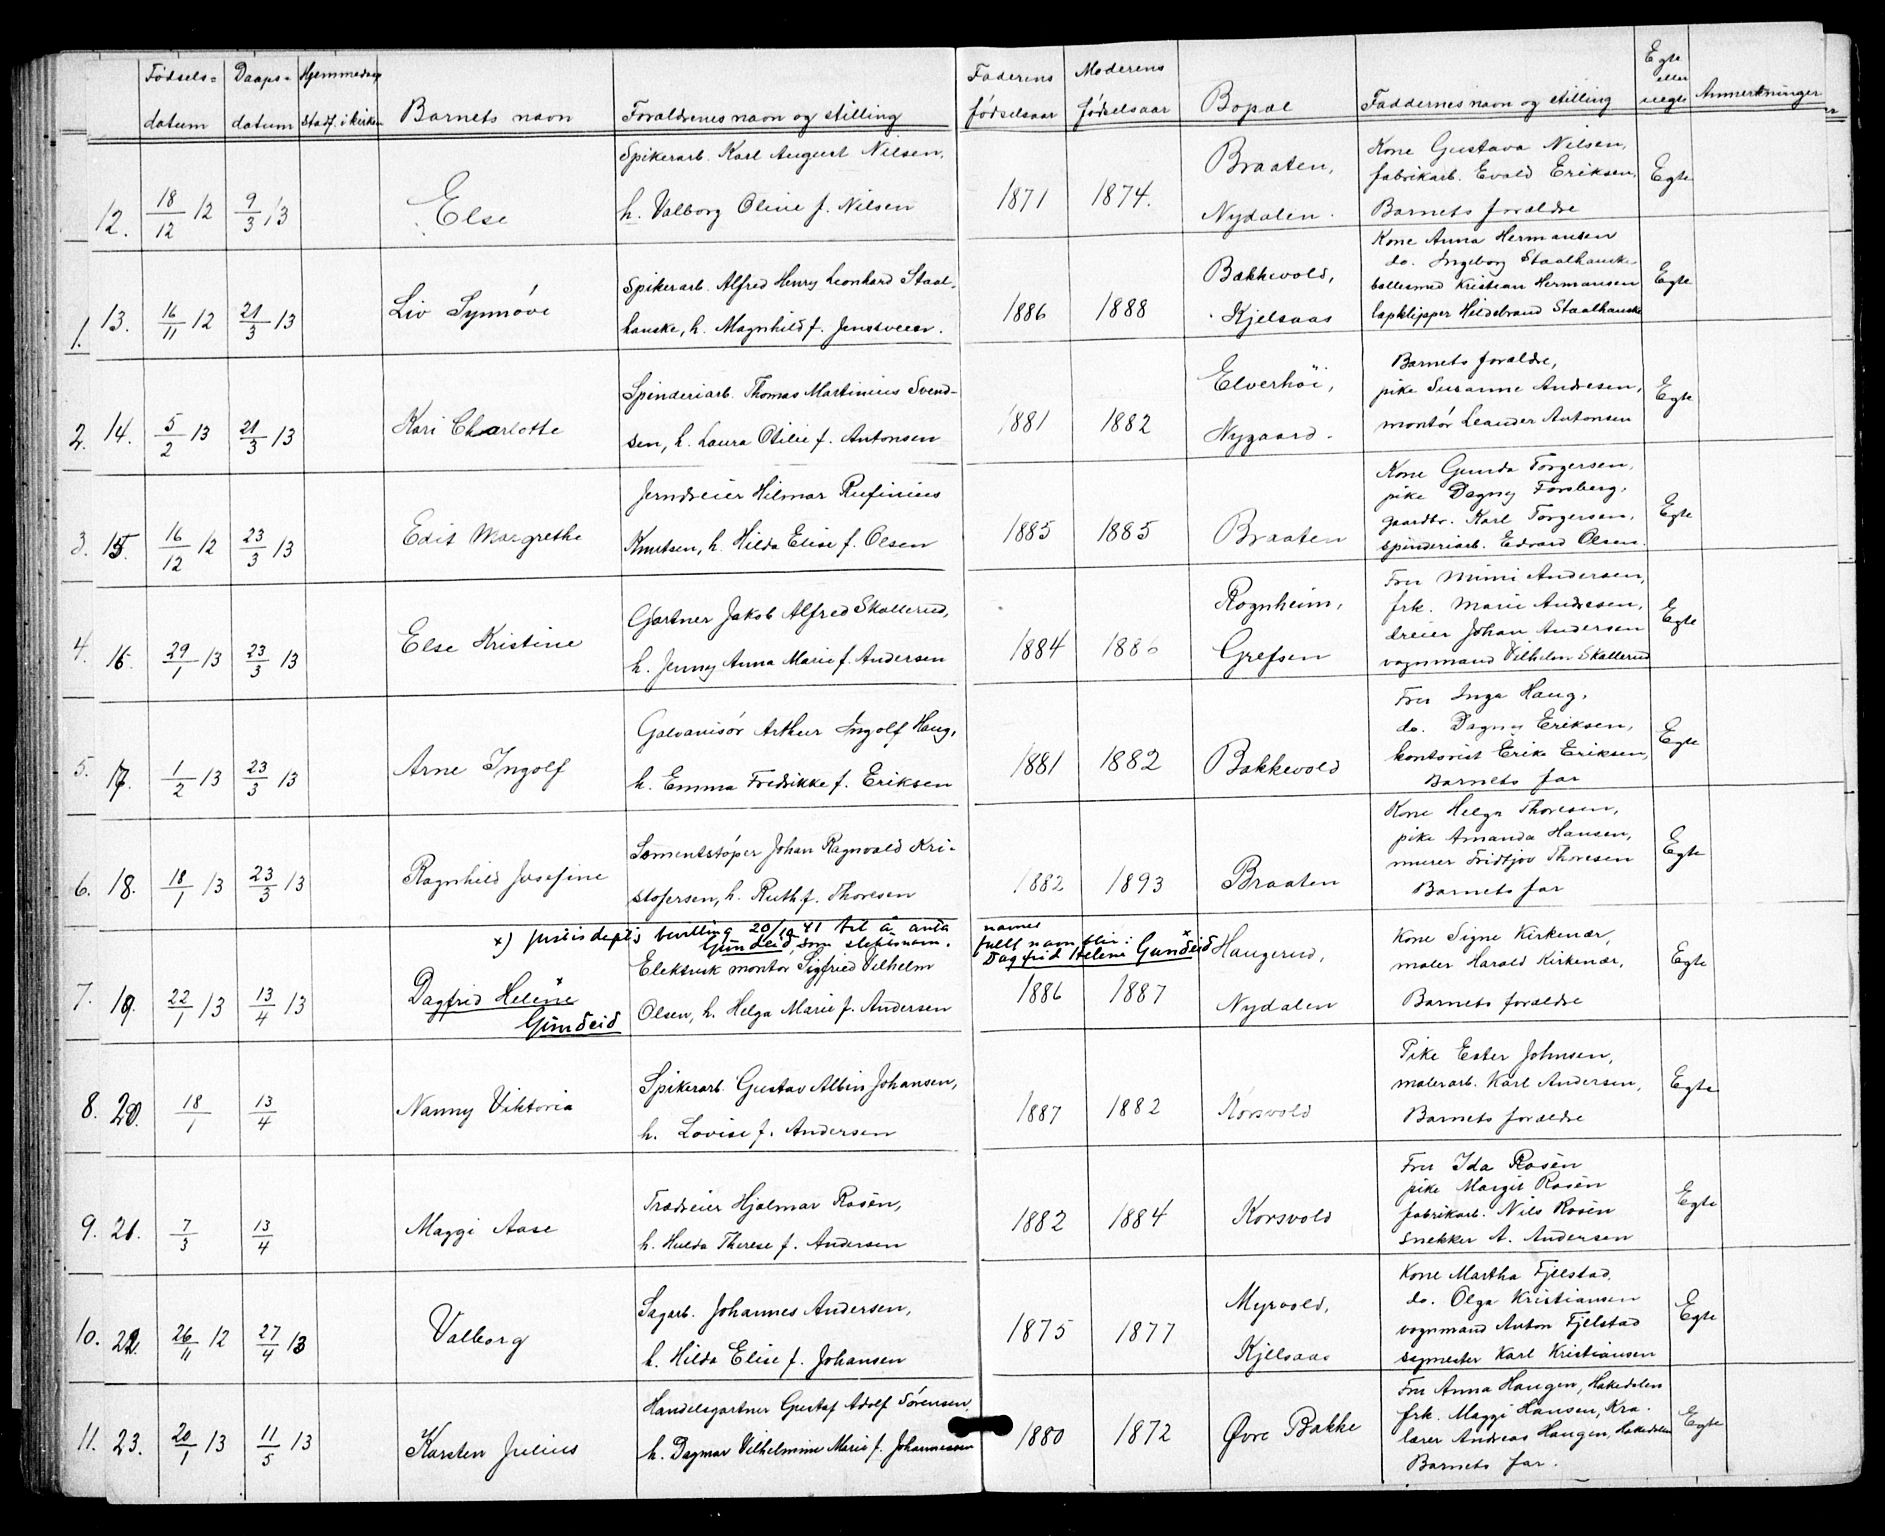 Fødsels= Daaps= Hjemmedøp Faderens Moderens Egte
datum datum Stadf. i kirken Barnets navn Forældrenes navn og stilling fødselsaar fødselsaar Bopæl Faddernes navn og stilling eller uegte Anmerkninger
12. 18/12 12 9/3 13 Else
Spikerarb. Karl August Nilsen,
h. Valborg Oline f. Nilsen
1871 1874.
Braaten,
Nydalen.
Kone Gustava Nilsen,
fabrikarb. Evald Eriksen,
Barnets forældre
Egte
1. 13. 16/11 12 21/3 13 Liv Synnøve
Spikerarb. Alfred Henry Leonhard Staal-
hanske, h. Magnhild f. Jenstveien.
1886 1888
Bakkevold,
Kjelsaas
Kone Anna Hermansen
do. Ingeborg Staalhanske
baltesmed Kristian Hermansen
lapklipper Hildebrand Staalhanske
Egte
2. 14. 5/2 13 21/3 13 Kari Charlotte
Spinderiarb. Thomas Martinius Svend-
sen, h. Laura Otilie f. Antonsen
1881 1882
Elverhöi,
Nygaard.
Barnets forældre,
pike Susanne Andresen,
montør Leander Antonsen
Egte
3. 15. 16/12 12 23/3 13 Edit Margrethe
Jerndreier Hilmar Rufinius
Knutsen, h. Hilda Elise f. Olsen
1885 1885
Braaten
Kone Gunda Torgersen,
pike Dagny Forsberg,
gaardbr. Karl Torgersen,
spinderiarb. Edvard Olsen.
Egte
4. 16. 29/1 13 23/3 13 Else Kristine
Gartner Jakob Alfred Skallerud,
h. Jenny Anna Marie f. Andersen
1884 1886
Rognheim,
Grefsen
Fru Mimi Andersen,
frk. Marie Andresen,
dreier Johan Andersen
vognmand Vilhelm Skallerud
Egte
5. 17. 1/2 13 23/3 13 Arne Ingolf
Galvanisør Arthur Ingolf Haug,
h. Emma Fredrikke f. Eriksen
1881 1882
Bakkevold
Fru Inga Haug,
do. Dagny Eriksen,
kontorist Erik Eriksen,
Barnets far
Egte
6. 18. 18/1 13 23/3 13 Ragnhild Josefine
Sementstøper Johan Ragnvald Kri-
stofersen, h. Ruth f. Thoresen
1882 1893
Braaten
Kone Helga Thoresen,
pike Amanda Hansen,
murer Fridtjov Thoresen
Barnets far
Egte
x) Justisdepts bevilling 20/10 41 til å anta navnet
Gundeid, som slektsnavn. fullt navn blir:
Dagfrid Helene Gundeid
7. 19. 22/1 13 13/4 13 Dagfrid Helene
Gundeid
Elektrisk montør Sigfried Vilhelm
Olsen, h. Helga Marie f. Andersen
1886 1887
Haugerud,
Nydalen
Kone Signe Kirkenær,
maler Harald Kirkenær,
Barnets forældre
Egte
8. 20. 18/1 13/4 Nanny Viktoria
Spikerarb. Gustav Albin Johansen,
h. Lovise f. Andersen
1887 1882
Korsvold
Pike Ester Johnsen,
malerarb. Karl Andersen,
Barnets forældre
Egte
9. 21. 7/3 13/4 Maggi Aase
Trædreier Hjalmar Rosén,
h. Hulda Therese f. Andersen
1882 1884
Korsvold
Fru Ida Rosén
pike Margit Rosén
fabrikarb. Nils Rosén
snekker A. Andersen
Egte
10. 22. 26/11 12 27/4 13 Valborg
Sagarb. Johannes Andersen,
h. Hilda Elise f. Johansen
1875 1877
Myrvold,
Kjelsaas
Kone Martha Fjelstad,
do. Olga Kristiansen
vognmand Anton Fjelstad
sagmester Karl Kristiansen
Egte
11. 23. 20/1 13 11/5 13 Karsten Julius
Handelsgartner Gustaf Adolf Sörensen,
h. Dagmar Vilhelmine Marie f. Johannessen
1880 1872
Øvre Bakke
Fru Anna Haugen, Hakedalen
frk. Maggi Hansen, Kra.
lærer Andreas Haugen, Hakedalen
Barnets far.
Egte